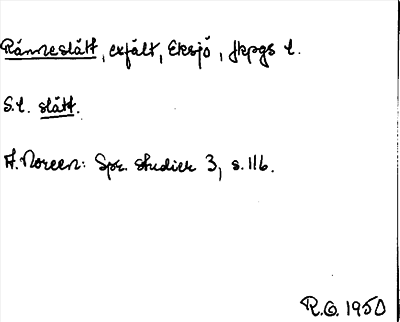 Ränneslätt, exfält, Eksjö, Jkpgs l.
S.l. slätt.
A. Noreen: Spr. studier 3, s. 116.
R.O. 1950